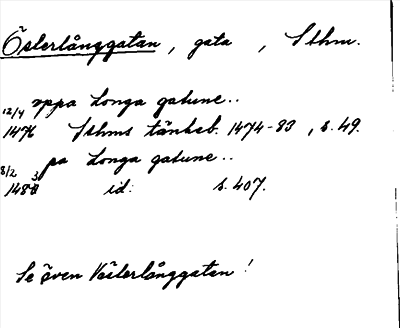 Österlånggatan, gata, Sthm.
uppa Longa gatune..
12/4 1476 Sthms tänkeb. 1474-83, s. 49.
pa Longa gatune..
8/2 1483 id: s. 407.
Se även Västerlånggatan!